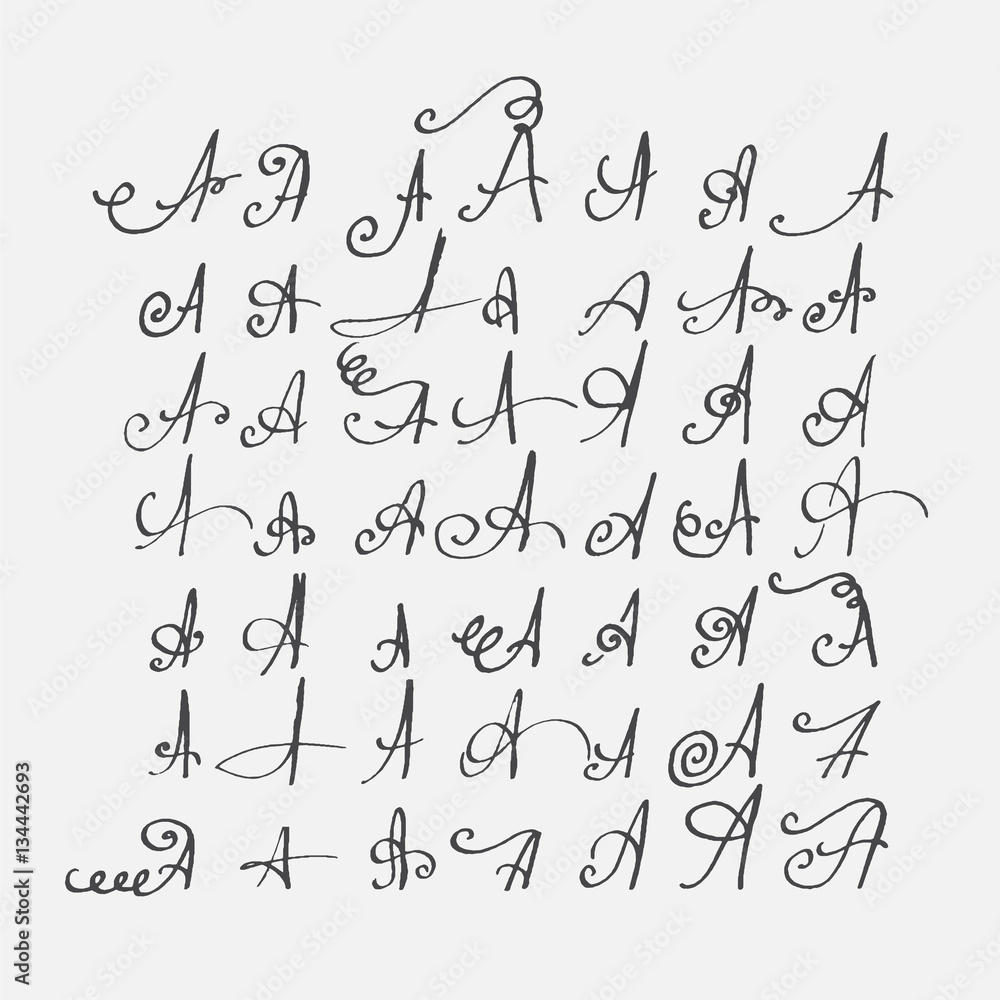 A A A A A A A
A A A A A A A A
A A A A A A A
A A A A A A A
A A A A A A A
A A A A A A A
A A A A A A A
Adobe Stock | #134442693